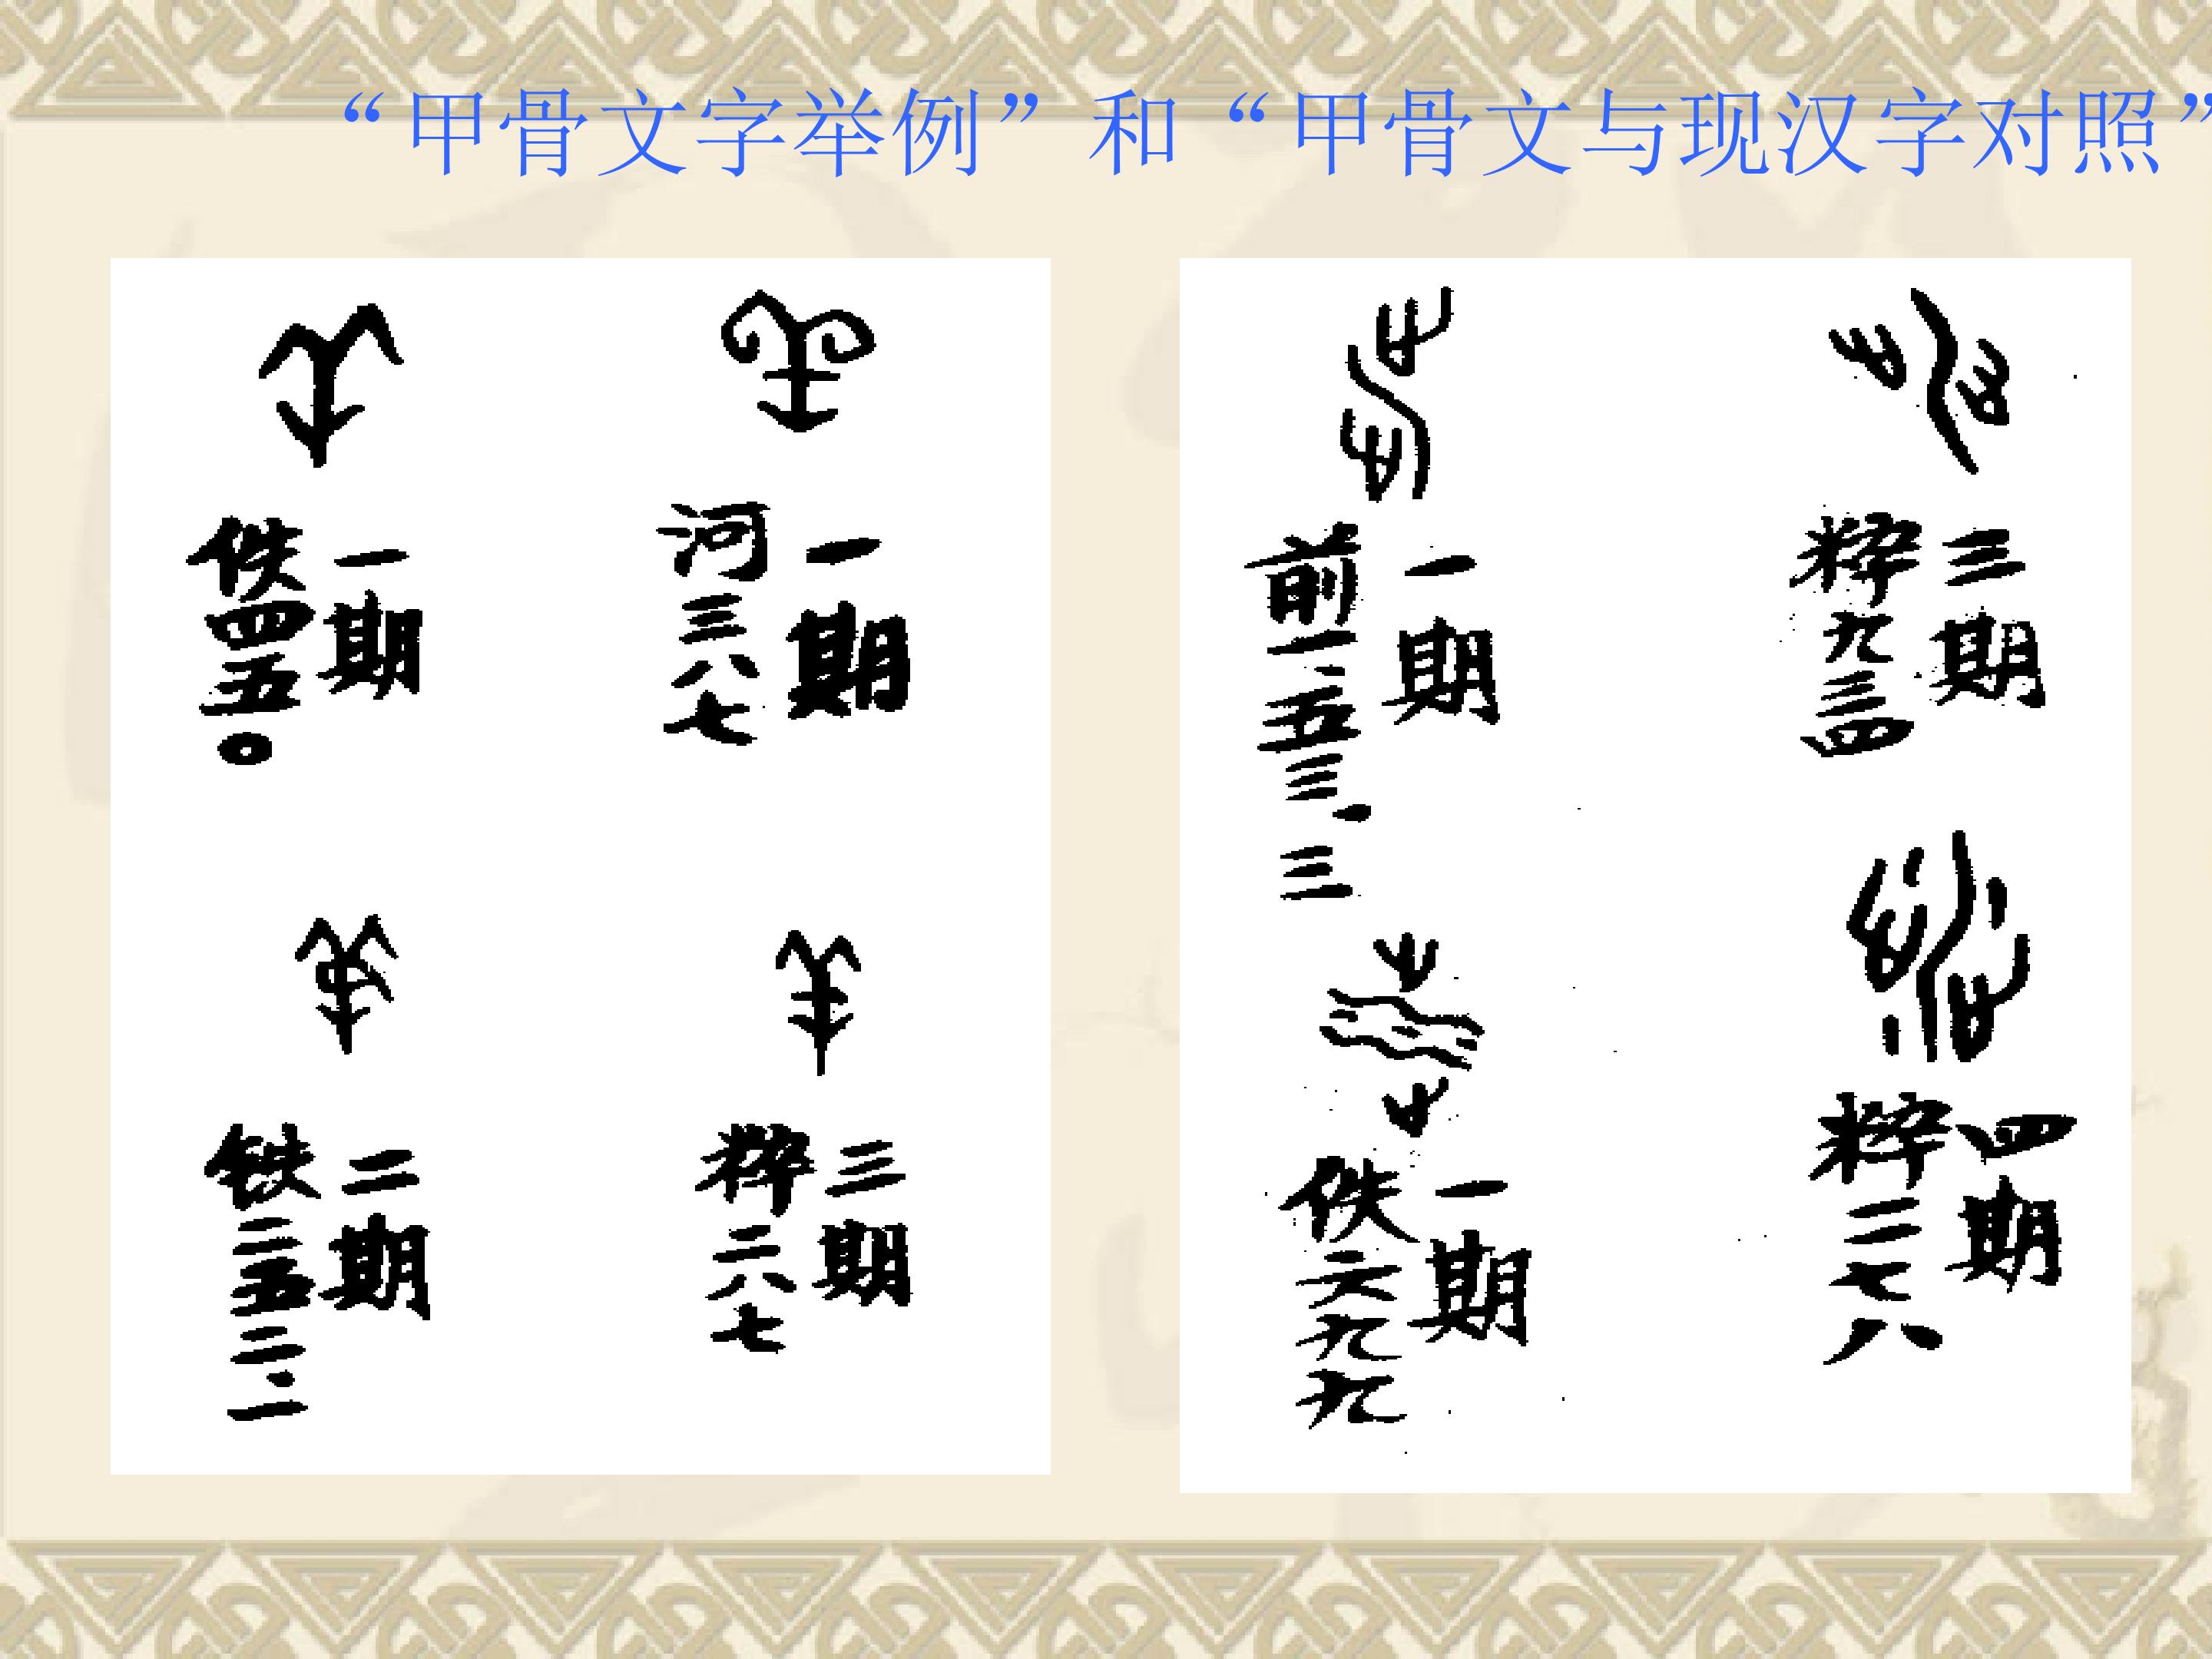 “甲骨文字举例”和“甲骨文与现汉字对照”
一期
佚四五〇
一期
河三八七
二期
铁二五二.一
三期
粹二八七
一期
前一.五三.三
三期
粹九三四
一期
佚六九九
四期
粹二七八